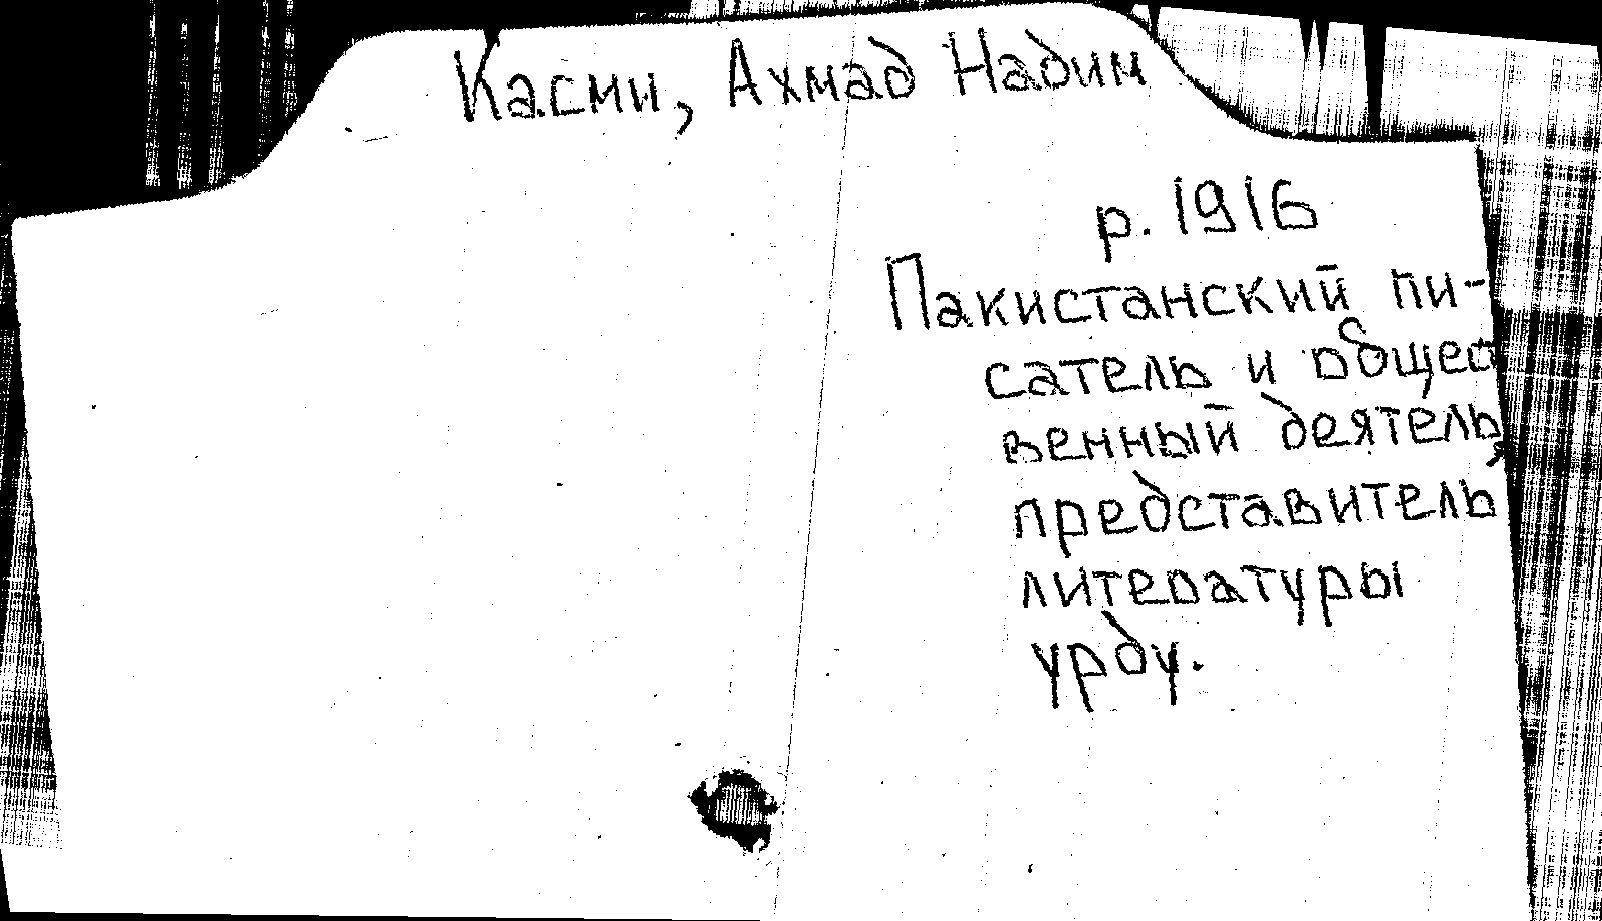 Касми, Ахмад Надим
р. 1916
Пакистанский пи-
сатель и общест
венный деятель,
представитель
литературы
урду.